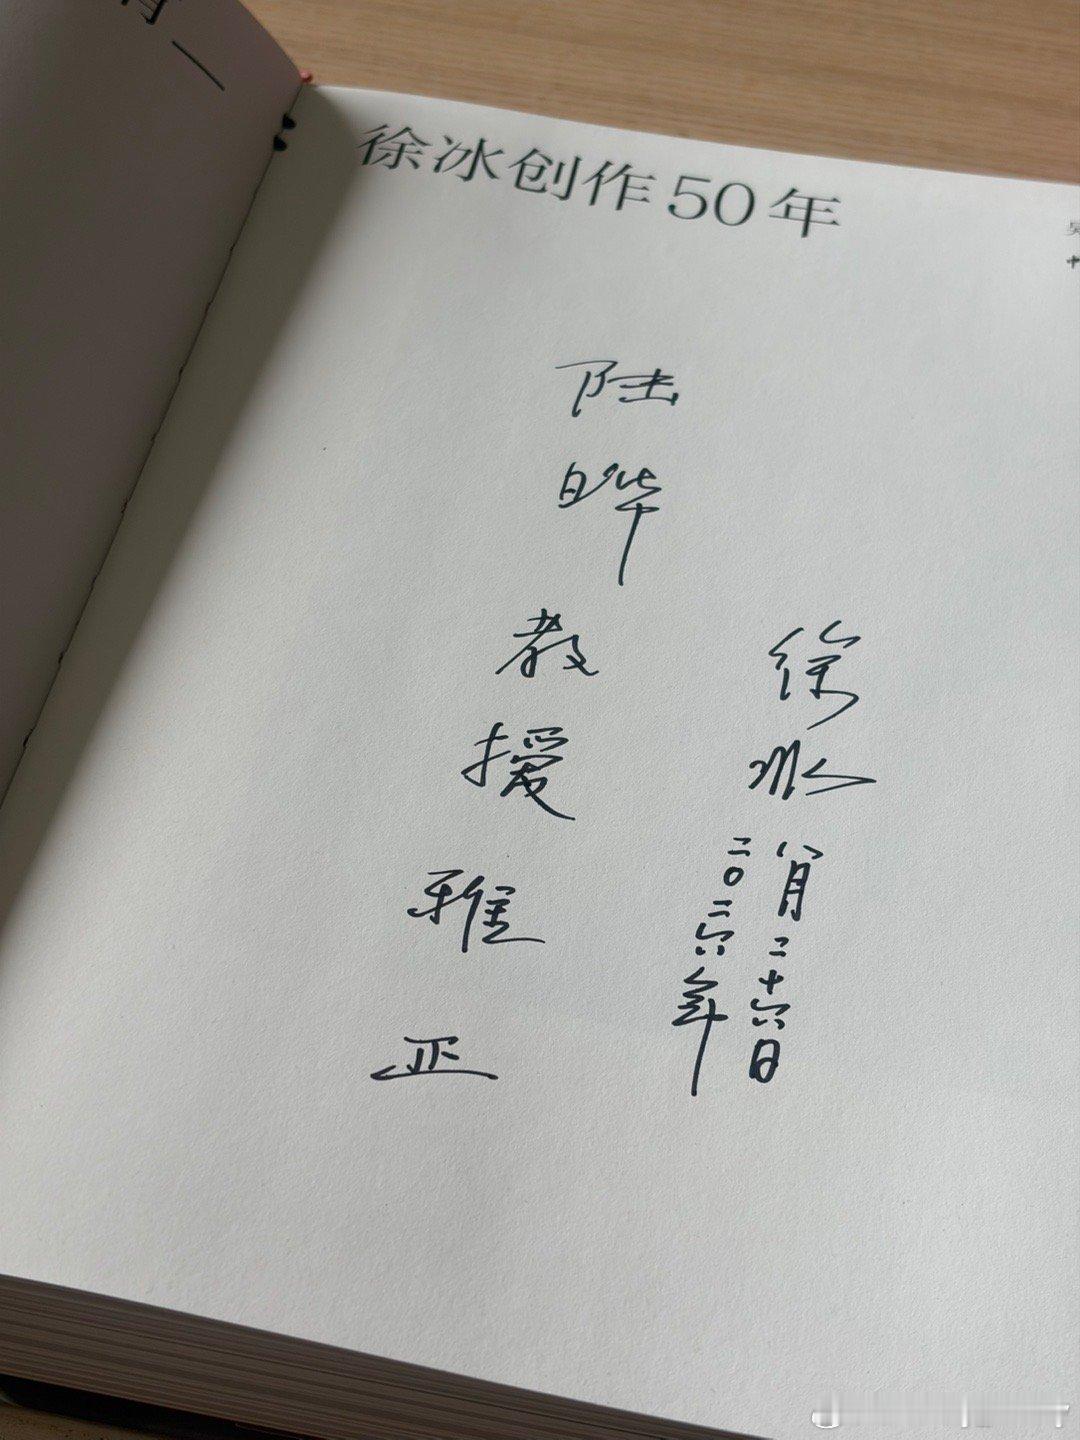 徐冰创作50年
陆晔教授雅正
徐冰
二〇二六年
八月二十六日